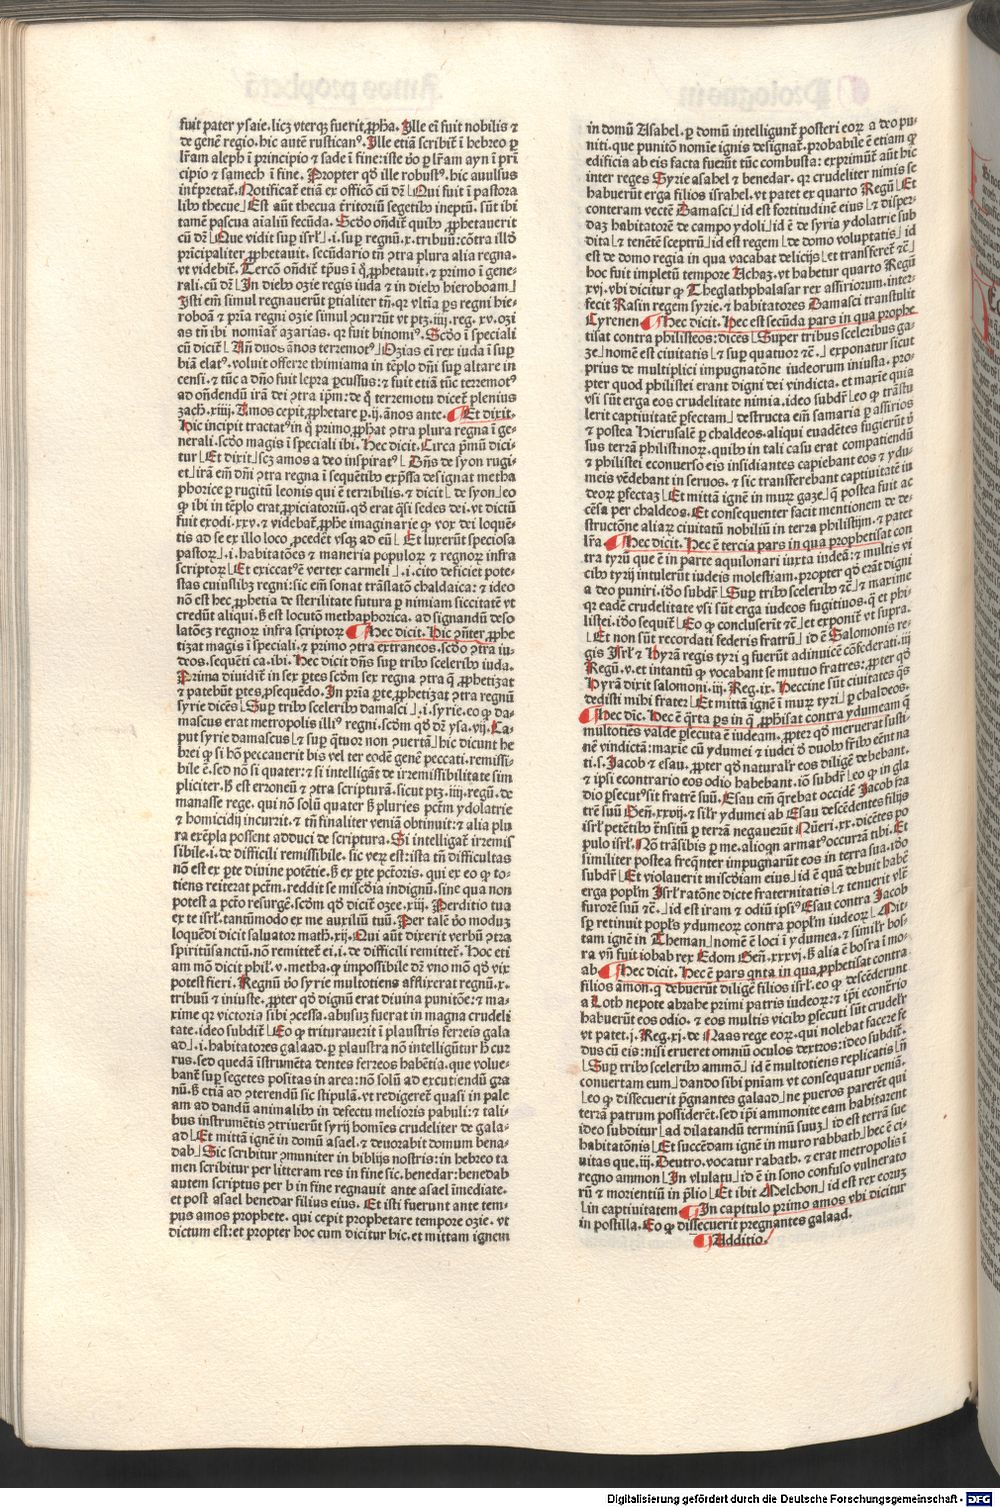 fuit pater ysaie. licꝫ vterqꝫ fuerit ꝓph̄a. Ille em̄ fuit nobilis ⁊
de genẽ regio. hic autẽ rusticanꝰ. Ille etiã scribit̃ ĩ hebreo p
lr̄am aleph ĩ principio ⁊ sade ĩ fine: iste ṽo p lr̄am ayn ĩ prĩ
cipio ⁊ samech ĩ fine. Propter qđ ille robustꝰ. hic auulsus
int̃pretat̃. Notificat̃ etiã ex officõ cũ dr̃ Qui fuit ĩ pastora
libꝰ thecue Est aũt thecua t̃ritoriũ segetibꝰ ineptũ. sũt ibi
tamẽ pascua aĩaliũ fecũda. Scđo oñdit̃ quibꝰ ꝓphetauerit
cũ dr̃ Que vidit sup̱ isrl̃ .i. sup̱ regnũ .x. tribuũ: cõtra illđ
prĩcipaliter ꝓphetauit. secũdario tñ ꝯtra plura alia regna.
vt videbit̃. Terciõ oñdit̃ tp̃us ĩ q̃ ꝓphetauit. ⁊ primo ĩ gene-
rali. cũ dr̃ In diebꝰ ozie regis iuda ⁊ in diebꝰ hieroboam
Isti em̃ simul regnauerũt ꝑtialiter tñ. qꝛ vltĩa ꝑs regni hie-
roboã ⁊ prĩa regni ozie simul ꝯcurrũt vt ptꝫ .iiij. reg. xv. ozi
as tñ ibi nomĩat̃ azarias. qꝛ fuit binomiꝰ. Scđo ĩ speciali
cũ dicit̃ Añ duos ãnos terremotꝰ Ozias eĩ rex iuda ĩ sup̱
biã elatꝰ. voluit offerre thimiama in tẽplo dñi sup̱ altare in
censi. ⁊ tũc a dño fuit lepra ꝑcussus: ⁊ fuit etiã tũc terremotꝰ
ad oñdendũ irã dei ꝯtra ip̃m: de q̃ terremotu dicet̃ plenius
zach̃. xiiij. Amos cepit ꝓphetare p .ij. ãnos ante. Et dixit.
Hic incipit tractatꝰ in q̃ primo ꝓph̃at ꝯtra plura regna ĩ ge-
nerali. scđo magis ĩ speciali ibi. Hec dicit. Circa pmũ dici-
tur Et dixit scꝫ amos a deo inspiratꝰ Dñs de syon rugi-
et irã em̃ dñi ꝯtra regna ĩ sequẽtibꝰ exp̃ssa designat metha
phorice p rugitũ leonis qui ē terribilis. ⁊ dicit de syon eo
ꝙ ibi in tẽplo erat ꝓpiciatoriũ. qđ erat q̃si sedes dei. vt dictũ
fuit exodi. xxv. ⁊ videbat̃ ꝓphe imaginarie ꝙ vox dei loquẽ-
tis ad se ex illo loco ꝓcedet̃ vsqꝫ ad eũ Et luxerũt speciosa
pastoꝝ .i. habitatões ⁊ maneria populoꝝ ⁊ regnoꝝ infra
scriptoꝝ Et exiccatꝰ ē vertex carmeli .i. cito deficiet pote-
stas cuiuslibꝫ regni: sic em̃ sonat trãslatõ chaldaica: ⁊ ideo
nõ est hec ꝓphetia de sterilitate futura p nimiam siccitatẽ vt
credũt aliqui. ß est locutõ methaphorica. ad signandũ deso
latõeꝫ regnoꝝ infra scriptoꝝ Hec dicit. Hic ꝯñter ꝓphe
tizat magis ĩ speciali. ⁊ primo ꝯtra extraneos. scđo ꝯtra iu-
deos. sequẽti ca. ibi. Hec dicit dñs sup̱ tribꝰ sceleribꝰ iuda.
Prima diuidit̃ in sex ꝑtes scđm sex regna ꝯtra q̃ ꝓphetizat
⁊ patebũt ꝑtes ꝓsequẽdo. In prĩa ꝑte ꝓphetizat ꝯtra regnũ
syrie dicẽs Sup̱ tribꝰ sceleribꝰ damasci .i. syrie. eo ꝙ da-
mascus erat metropolis illiꝰ regni. scđm qđ dr̃ ysa. vij. Ca-
put syrie damascus ⁊ sup̱ q̃tuor non ꝯuertã hic dicunt he
brei ꝙ si hõ peccauerit bis vel ter eodẽ genẽ peccati. remissi-
bile ē. sed nõ si quater: ⁊ si intelligãt de irremissibilitate sim
pliciter. ß est erroneũ ⁊ ꝯtra scripturã. sicut ptꝫ. iiij. regũ. de
manasse rege. qui nõ solũ quater ß pluries pctm̃ ydolatrie
⁊ homicidij incurrit. ⁊ tñ finaliter veniã obtinuit: ⁊ alia plu
ra exẽpla possent adduci de scriptura. Si intelligat̃ irremis
sibile .i. de difficili remissibile. sic verꝫ est: ista tñ difficultas
nõ est ex ꝑte diuine potẽtie. ß ex ꝑte pctõris. qui ex eo ꝙ to-
tiens reiterat pctm̃. reddit se misc̃dia indignũ. sine qua non
potest a pctõ resurgẽ. scđm qđ dicit̃ ozee. xiij. Perditio tua
ex te isrl̃. tantũmodo ex me auxiliũ tuũ. Per talẽ ṽo moduꝫ
loquẽdi dicit saluator math̃. xij. Qui aũt dixerit verbũ ꝯtra
spiritũsanctũ. nõ remittet̃ ei .i. de difficili remittet̃. Hoc eti
am mõ dicit phil̃. v. metha. ꝙ impossibile dr̃ vno mõ qđ vix
potest fieri. Regnũ ṽo syrie multotiens afflixerat regnũ .x.
tribuũ ⁊ iniuste. ꝓpter qđ dignũ erat diuina punitõe: ⁊ ma-
xime qꝛ victoria sibi ꝯcessa. abusuꝫ fuerat in magna crudeli
tate. ideo subdit̃ Eo ꝙ triturauerit ĩ plaustris ferreis gala
ad .i. habitatores galaad. p plaustra nõ intelligũtur h̃ cur
rus. sed quedã ĩstrumẽta dentes ferreos habẽtia. que volue-
bant̃ sup̱ segetes positas in area: nõ solũ ad excutiendũ gra
nũ. ß etiã ad ꝯterendũ sic stipulã. vt redigeret̃ quasi in pale
am ad dandũ animalibꝰ in defectu melioris pabuli: ⁊ tali-
bus instrumẽtis ꝯtriuerũt syrij homĩes crudeliter de gala-
ad Et mittã ignẽ in domũ asael. ⁊ deuorabit domum bena-
dab Sic scribitur ꝯmuniter in biblijs nostris: in hebreo ta
men scribitur per litteram res in fine sic. benedar: benedab
autem scriptus per b in fine regnauit ante asael ĩmediate.
et post asael benedar filius eius. Et isti fuerunt ante tem-
pus amos prophete. qui cepit prophetare tempore ozie. vt
dictum est: et propter hoc cum dicitur hic. et mittam ignem
in domũ Asahel. p domũ intelligunt̃ posteri eoꝝ a deo pu-
niti. que punitõ nomĩe ignis designat̃. probabile ē etiam ꝙ
edificia ab eis facta fuerũt tũc combusta: exprimũt̃ aũt hic
inter reges Syrie asahel ⁊ benedar. qꝛ crudeliter nimis se
habuerũt erga filios israhel. vt patet ex quarto Regũ Et
conteram vectẽ Damasci id est fortitudinẽ eius ⁊ disper-
daꝫ habitatorẽ de campo ydoli id ē de syria ydolatrie sub
dita ⁊ tenẽtẽ sceptrũ id est regem de domo voluptatis id
est de domo regia in qua vacabat delicijs et transferet̃ ⁊c̃
hoc fuit impletũ tempore Achaz. vt habetur quarto Regũ
xvj. vbi dicitur ꝙ Theglathphalasar rex assiriorum. inter-
fecit Rasin regem syrie. ⁊ habitatores Damasci transtulit
Cyrenen Hec dicit. Hec est secũda pars in qua prophe
tisat contra philisteos: dicẽs Super tribus sceleribus ga-
ze nomẽ est ciuitatis ⁊ sup quatuor ⁊c̃. exponatur sicut
prius de multiplici impugnatõne iudeorum iniusta. pro-
pter quod philistei erant digni dei vindicta. et maxĩe quia
vsi sũt erga eos crudelitate nimia. ideo subdit̃ eo ꝙ trãstu
lerit captiuitatẽ ꝑfectam destructa em̃ samaria p assirios
⁊ postea Hierusalẽ p chaldeos. aliqui euadẽtes fugierũt ṽ
sus terrã philistinoꝝ. quibꝰ in tali casu erat compatiendũ
⁊ philistei econuerso eis insidiantes capiebant eos ⁊ ydu-
meis vẽdebant in seruos. ⁊ sic transferebant captiuitatẽ iu
deoꝝ ꝑfectaꝫ Et mittã ignẽ in muꝝ gaze q̃ postea fuit ac
cẽsa per chaldeos. Et consequenter facit mentionem de de-
structõne aliaꝝ ciuitatũ nobiliũ in terra philistijm. ⁊ patet
lr̃a. Hec dicit. Hec ē tercia pars in qua prophetisat con
tra tyrũ que ē in parte aquilonari iuxta iudeã: ⁊ multis vi
cibꝰ tyrij intulerũt iudeis molestiam. propter qđ erãt digni
a deo puniri. iđo subdit̃ Sup̱ tribꝰ sceleribꝰ ⁊c̃ ⁊ maxime
qꝛ eadẽ crudelitate vsi sũt erga iudeos fugitiuos. q̃ et phi-
listei. iđo sequit̃ Eo ꝙ concluserit ⁊c̃ et exponit̃ vt supra.
Et non sũt recordati federis fratrũ id ē Salomonis re-
gis Isrl̃ ⁊ Hyrã regis tyri q̃ fuerũt adinuicẽ cõfederati. iij
Regũ. v. et intantũ ꝙ vocabant se mutuo fratres: ꝓpter qđ
Hyrã dixit salomoni. iij. Reg. ix. Heccine sũt ciuitates q̃s
dedisti mihi frater Et mittã ignẽ ĩ muꝝ tyri p chaldeos.
Hec dic̃. Hec ē q̃rta ꝑs in q̃ ꝓph̃isat contra ydumeam q̃
multotiẽs valde ꝑsecuta ē iudeam. ꝓpter qđ meruerat susti-
nẽ vindictã: maxie cũ ydumei ⁊ iudei đ duobꝰ fribꝰ eẽnt na
ti. s. Jacob ⁊ esau. ꝓpter qđ naturalr̃ eos diligẽ debebant.
⁊ ipsi econtrario eos odio habebant. iõ subdit̃ eo ꝙ in gla
dio ꝑsecutꝰ sit fratrẽ suũ. Esau em̃ q̃rebat occidẽ Jacob fra
trẽ suũ Geñ. xxvij. ⁊ silr̃ ydumei ab Esau descẽdentes filijs
isrl̃ petẽtibꝰ t̃nsitũ p terrã negauerũt Nũeri. xx. dicẽtes po
pulo isrl̃. Nõ trãsibis p me. alioqñ armatꝰ occurrã tibi. Et
similiter postea freq̃nter impugnarũt eos in terra sua. iđo
subdit̃ Et violauerit misc̃diam eius id ē quã debuit habẽ
erga popl̃m Isrl̃ ratõne dicte fraternitatis ⁊ tenuerit vl̃t̃
furorẽ suũ ⁊c̃. id est iram ⁊ odiũ ipsiꝰ Esau contra Jacob
sp̱ retinuit popl̃s ydumeoꝝ contra popl̃m iudeoꝝ Mit-
tam ignẽ in Theman nomẽ ē loci ĩ ydumea. ⁊ similr̃ bos-
ra vñ fuit iobab rex Edom Geñ. xxxvj. ß alia ē bosra ĩ mo-
ab Hec dicit. Hec ē pars q̃nta in qua ꝓphetisat contra
filios amon. q̃ debuerũt diligẽ filios isrl̃. eo ꝙ descẽderunt
a Loth nepote abrahe primi patris iudeoꝝ: ⁊ ip̃i econtrario
habuerũt eos odio. ⁊ eos multis vicibꝰ ꝑsecuti sũt crudelr̃
vt patet. j. Reg. xj. de Naas rege eoꝝ. qui nolebat facere fe
dus cũ eis: nisi erueret omniũ oculos dextros: ideo subdit̃.
Sup̱ tribꝰ sceleribꝰ ammõ id ē multotiens replicatis ñ
conuertam eum dando sibi pniam vt consequatur veniã.
eo ꝙ dissecuerit p̃gnantes galaad ne pueros parerẽt qui
terrã patrum possiderẽt. sed ip̃i ammonite eam habitarent
ideo subditur ad dilatandũ terminũ suuꝫ id est terrã sue
habitatõnis Et succẽdam ignẽ in muro rabbath hec ē ci-
uitas que. iij. Deutro. vocatur rabath. ⁊ erat metropolis ĩ
regno ammon In vlulatu id ē in sono confuso vulnerato
rũ ⁊ morientiũ in p̃lio Et ibit Melchon id est rex eoruꝫ
in captiuitatem In capitulo primo amos vbi dicitur
in postilla. Eo ꝙ dissecuerit pregnantes galaad.
Additio.
Digitalisierung gefördert durch die Deutsche Forschungsgemeinschaft - DFG